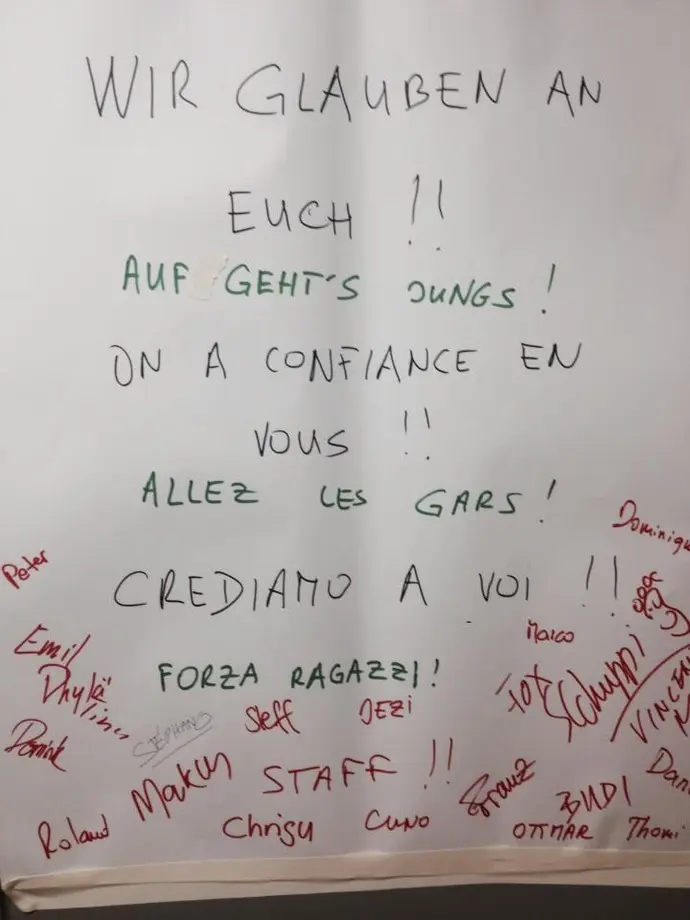 WIR GLAUBEN AN
EUCH !!
AUF GEHT'S JUNGS !
ON A CONFIANCE EN
VOUS !!
ALLEZ LES GARS !
Dominiqu
Peter
CREDIAMO A VOI !!
Marco
Emil
FORZA RAGAZZI !
Schuppi
Steff
JEZI
VINCE
STEPHANO
Dominik
STAFF !!
Franz
Dan
BUDI
Roland
Chrigu
CUNO
OTTMAR
Thomi